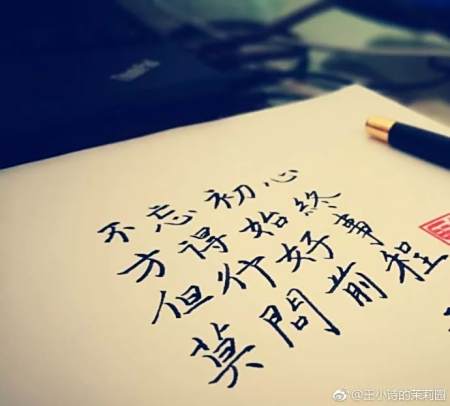 ThinkPad
不忘初心
方得始終
但行好事
莫問前程
@王小诗的茉莉园